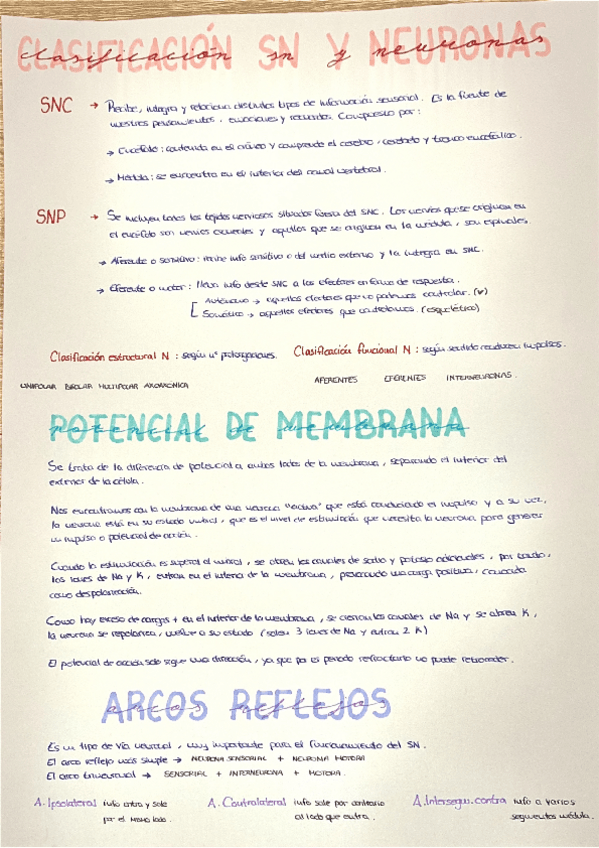 CLASIFICACIÓN SN Y NEURONAS
clasificación sn y neuronas
SNC → Recibe, integra y relaciona distintos tipos de información sensorial. Es la fuente de
nuestros pensamientos, emociones y recuerdos. Compuesto por:
→ Encéfalo: contenida en el cráneo y comprende el cerebro, cerebelo y tronco encefálico.
→ Médula: se encuentra en el interior del canal vertebral.
SNP → Se incluyen todos los tejidos nerviosos situados fuera del SNC. Los nervios que se originan en
el encéfalo son nervios craneales y aquellos que se originan en la médula, son espinales.
→ Aferente o sensitivo: recibe info sensitiva o del medio externo y la integra en SNC.
→ Eferente o motor: lleva info desde SNC a los efectores en forma de respuesta.
Autónomo → aquellos efectores que no podemos controlar.
Somático → aquellos efectores que controlamos. (esquelético)
Clasificación estructural N : según nº prolongaciones. Clasificación funcional N : según sentido conducen impulsos.
UNIPOLAR BIPOLAR MULTIPOLAR AXOMÓNICA AFERENTES EFERENTES INTERNEURONAS.
POTENCIAL DE MEMBRANA
potencial de membrana
Se trata de la diferencia de potencial a ambos lados de la membrana, separando el interior del
exterior de la célula.
Nos encontramos con la membrana de una neurona "activa" que está conduciendo el impulso y a su vez,
la neurona está en su estado umbral, que es el nivel de estimulación que necesita la neurona para generar
un impulso o potencial de acción.
Cuando la estimulación es superal el umbral, se abren los canales de sodio y potasio adicionales, por tanto,
los iones de Na y K, entran en el interior de la membrana, provocando una carga positiva, conocida
como despolarización.
Como hay exceso de cargas + en el interior de la membrana, se cierran los canales de Na y se abren K,
la neurona se repolariza, vuelve a su estado (salen 3 iones de Na y entran 2 K)
El potencial de acción solo sigue una dirección, ya que por el periodo refractario no puede retroceder.
ARCOS REFLEJOS
arcos reflejos
Es un tipo de vía neuronal, muy importante para el funcionamiento del SN.
El arco reflejo más simple → NEURONA SENSORIAL + NEURONA MOTORA
El arco trineuronal → SENSORIAL + INTERNEURONA + MOTORA.
A. Ipsolateral info entra y sale A. Contralateral info sale por contrario A. Intersegu. contra info a varios
por el MISMO lado. al lado que entra. segmentos médula.